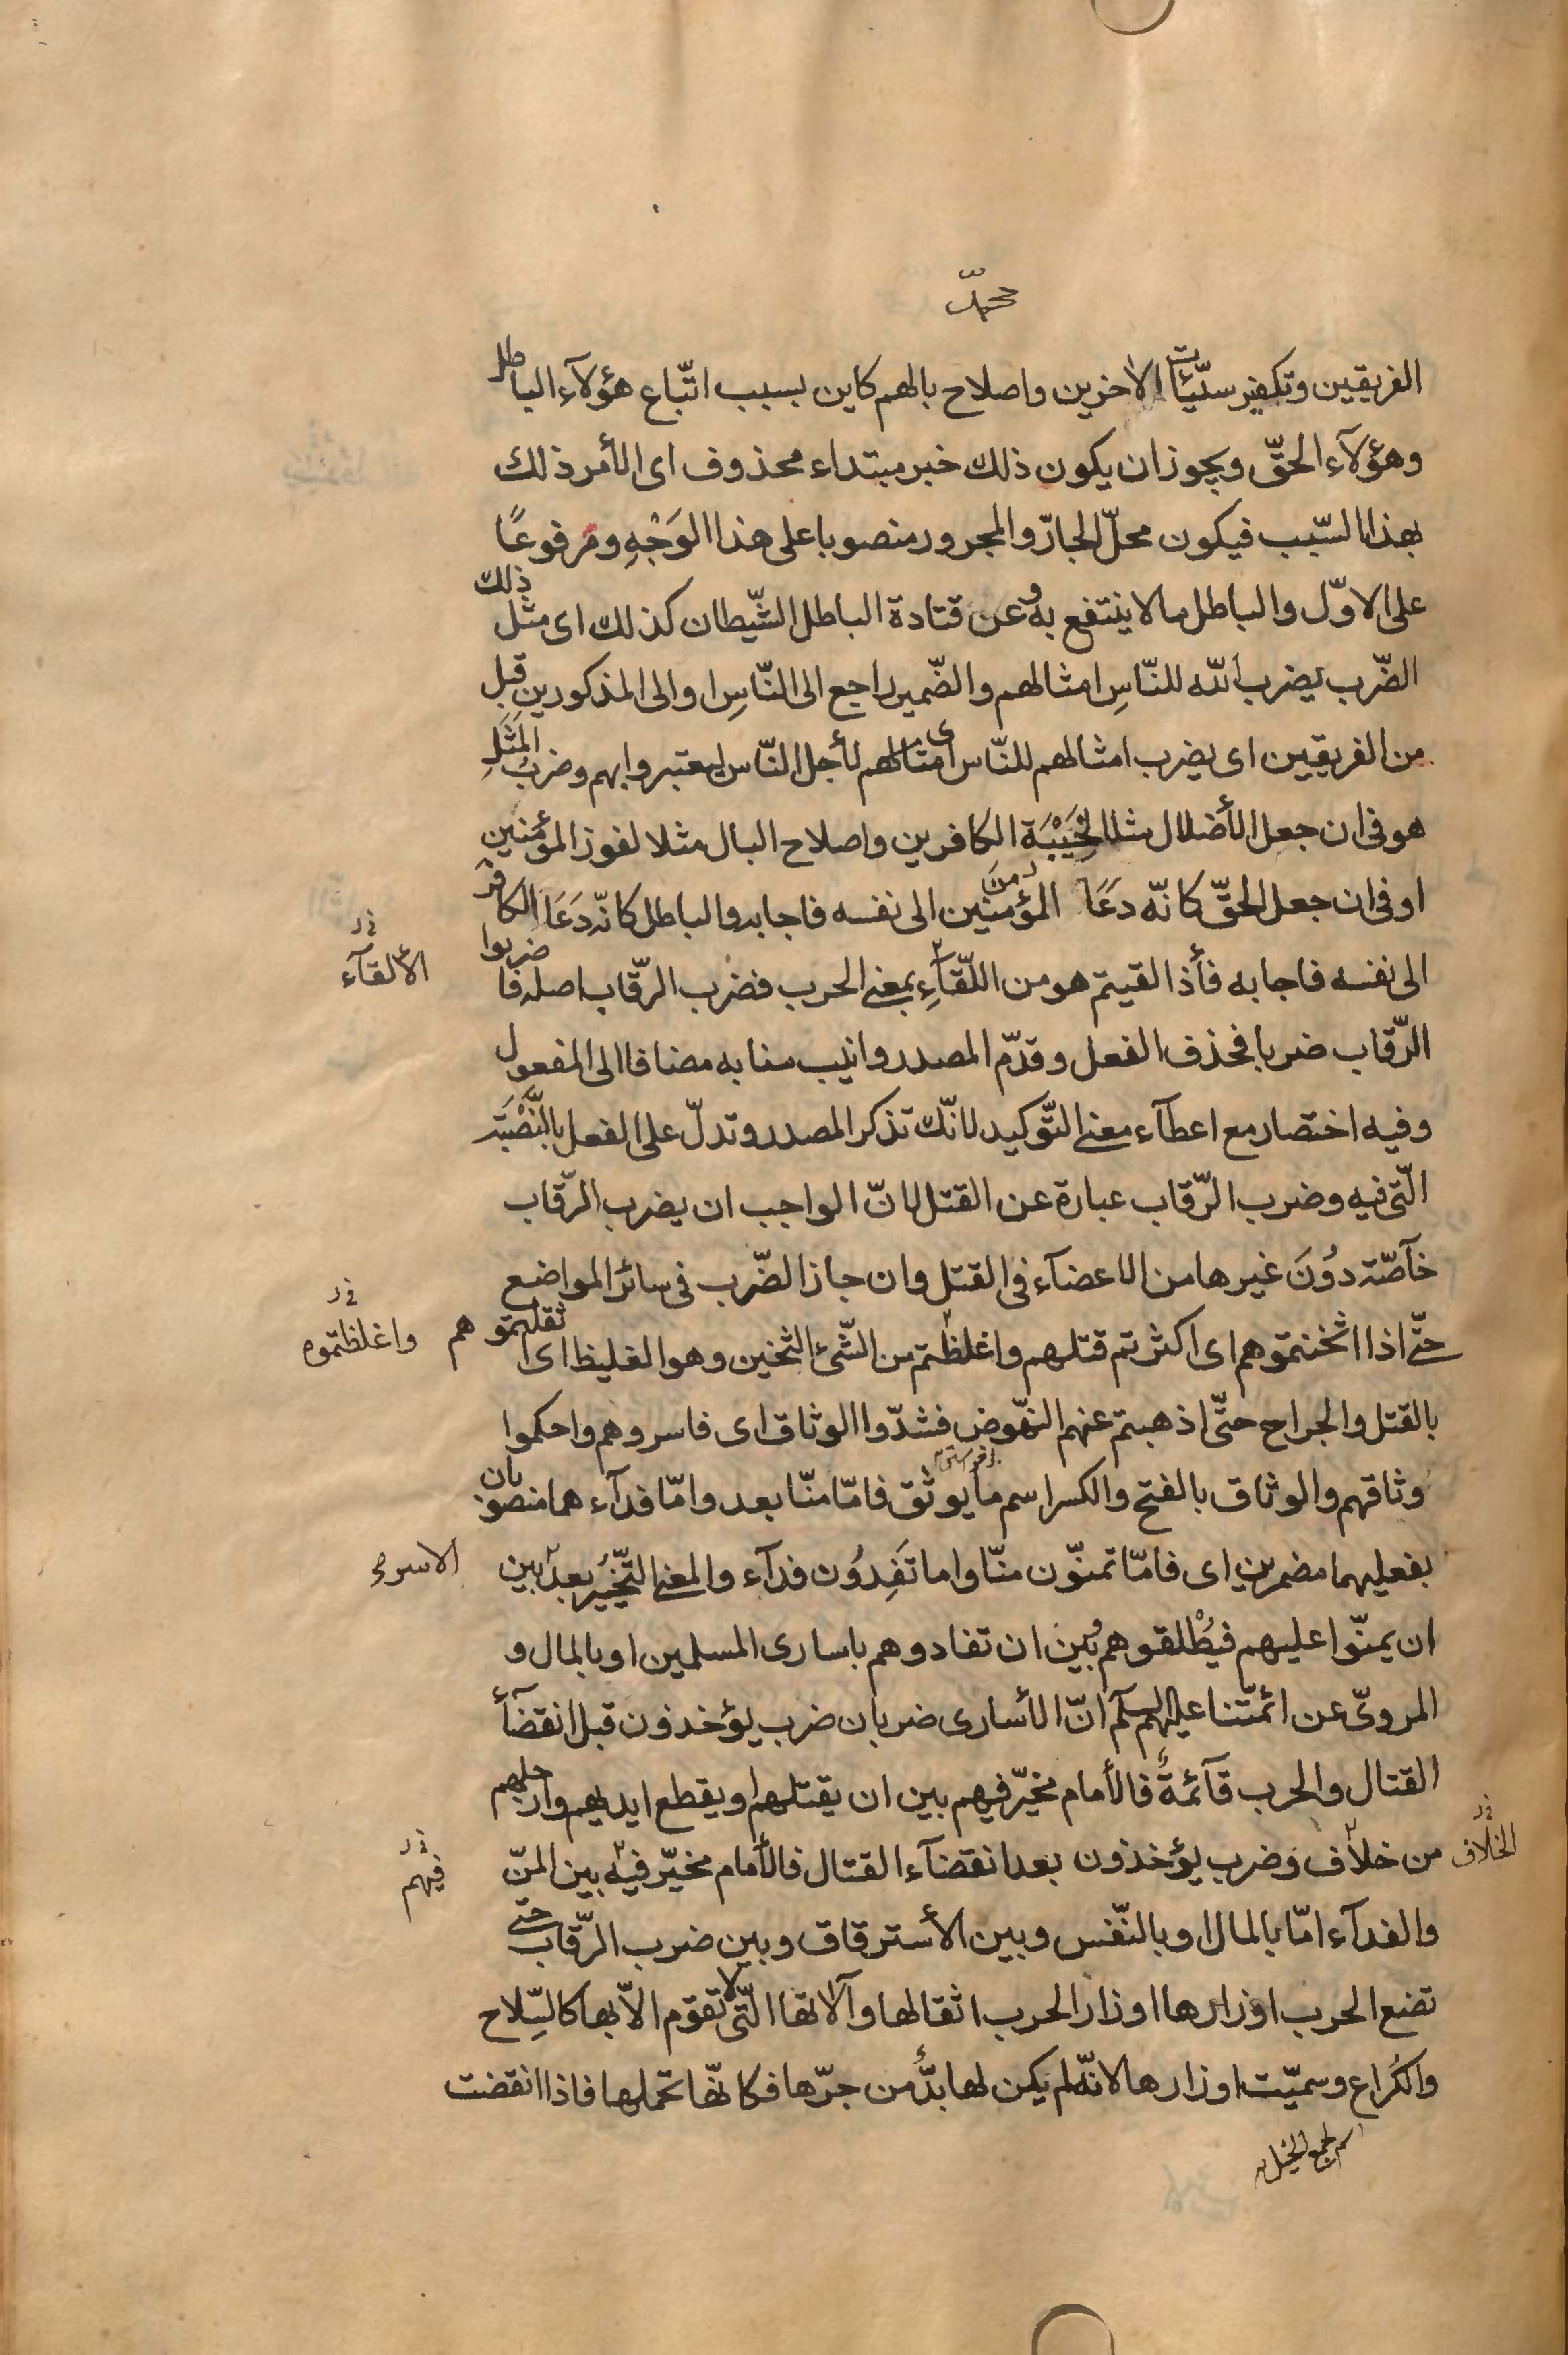 محمّد
الفريقين وتكفير سيّئات الاخرين واصلاح بالهم كاين بسبب اتّباع هؤلآء الباطل
وهؤلآء الحقّ ويجوز ان يكون ذلك خبر مبتداء محذوف اى الأمر ذلك
بهذا السّبب فيكون محلّ الجارّ والمجرور منصوبا على هذا الوَجْهِ ومرفوعًا
على الاوّل والباطل ما لا ينتفع به وعن قتادة الباطل الشّيطان كذلك اى مثل ذلك
الضّرب يضرب اللّه للنّاسِ امثالهم والضّمير راجع الى النّاسِ او الى المذكورين قبل
من الفريقين اى يضرب امثالهم للنّاس اى امثالهم لأجل النّاس ليعتبروا بهم وضرب المَثَلِ
هو فى ان جعل الأضلال مثلا لخَيْبَة الكافرين واصلاح البال مثلا لفوز المؤمنين
او فى ان جعل الحقّ كانّه دَعَا المؤمنين الى نفسه فاجابه والباطل كانّه دَعَا الكافر
الألقآء
الى نفسه فاجابه فأذا لقيتم هو من اللّقآءِ بمعنى الحرب فضرب الرّقاب اصله فاضربوا
الرّقاب ضربا فحذف الفعل وقدّم المصدر وانيب منابه مضافا الى المفعول
وفيه اختصار مع اعطآء معنى التّوكيد لانّك تذكر المصدر وتدلّ على الفعل بالنَّصْبَة
الّتى فيه وضرب الرّقاب عبارة عن القتل لانّ الواجب ان يضرب الرّقاب
خآصّة دُونَ غيرها من الاعضآء فى القتل وان جاز الضّرب فى سائر المواضع
حتّى اذا اثخنتموهم اى اكثرتم قتلهم واغلظتم من الشّئ الثخين وهو الغليظ اى اثقلتموهم
واغلظتموه
بالقتل والجراح حتّى اذهبتم عنهم النهّوض فشدّوا الوثاق اى فاسروهم واحكموا
وثاقهم والوثاق بالفتح والكسر اسم ما يوثق فامّا منّا بعد وامّا فدآء هما منصوبان
بفعليهما مضمرين اى فامّا تمنّون منّا واما تَفِدُون فدآء والمعنى التّخيُير بعد بين
الاسر
ان يمنّوا عليهم فيُطْلقوهم وبين ان تفادوهم باسارى المسلمين او بالمال و
المروىّ عن ائمّتنا عليهم السلم انّ الأسارى ضربان ضرب يؤخذون قبل انقضآء
القتال والحرب قآئمةٌ فالأمام مخيّر فيهم بين ان يقتلهم او يقطع ايديهم وارجلهم
الخلاف
من خلاف وضرب يؤخذون بعد انقضآء القتال فالأمام مخيّر فيه بين المنّ
فيهم
والفدآء امّا بالمال او بالنّفس وبين الأسترقاق وبين ضرب الرّقاب حتّى
تضع الحرب اوزارها اوزار الحرب اثقالها وآلاتها الّتى لا تقوم الاّ بها كالسِّلاح
والكُراع وسميّت اوزارها لانّه لم يكن لها بدٌّ من جرّها فكانّها تحملها فاذا انقضت
اسم لجمع الخيل